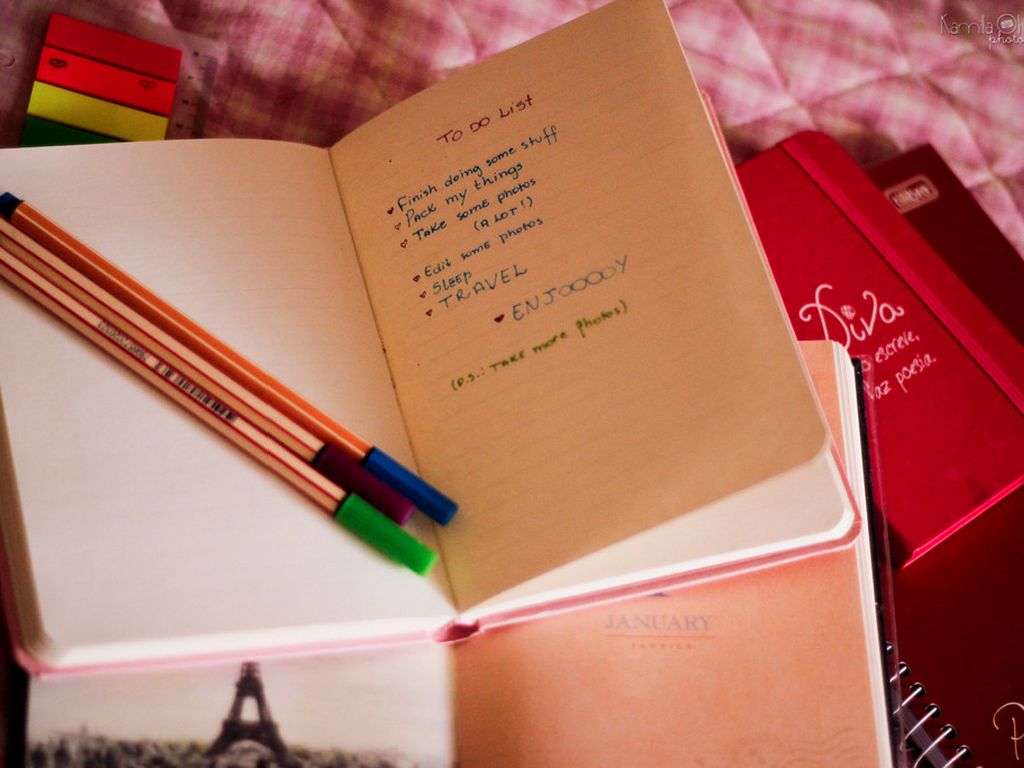 Kamilla
photo
TO DO LIST
Finish doing some stuff
Pack my things
Take some photos
(A LOT!)
Edit some photos
SLEEP
TRAVEL
ENJOOOOY
(P.S.: TAKE more photos)
Diva
escreve,
az poesia.
JANUARY